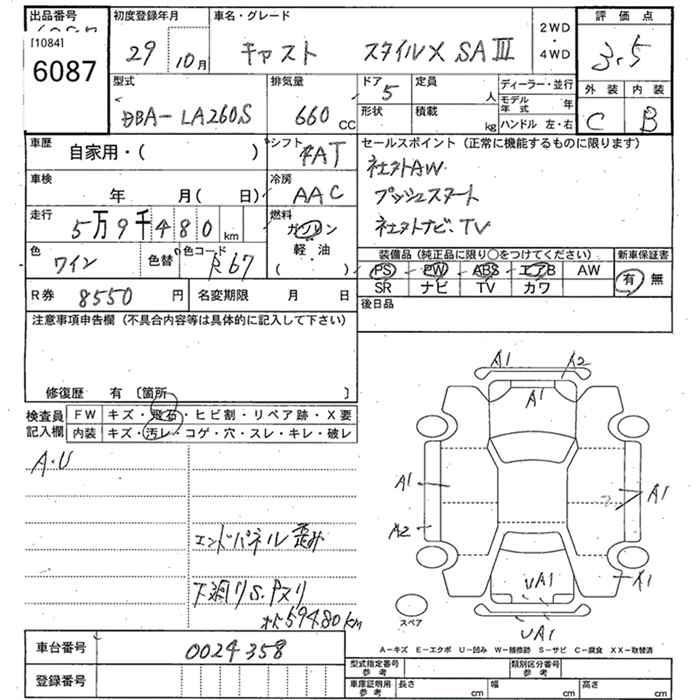 出品番号 初度登録年月 車名・グレード 2WD・4WD 評価点
[1084]
6087 29 10月 キャスト スタイルX SAⅢ 3.5
型式 排気量 ドア 5 定員 人 ディーラー・並行 外装 内装
DBA-LA260S 660cc 形状 積載 kg モデル年式 年 C B
ハンドル 左・右
車歴 自家用・( ) シフト AT セールスポイント(正常に機能するものに限ります)
車検 年 月( 日) 冷房 AAC 社外AW
走行 5万9千480km 燃料 ガソリン プッシュスタート
軽油 社外ナビ、TV
( )
色 ワイン 色替 色コード R67 装備品(純正品に限り○をつけてください) 新車保証書
PS PW ABS エアB AW 有 無
R券 8550円 名変期限 月 日 SR ナビ TV カワ
注意事項申告欄(不具合内容等は具体的に記入して下さい) 後日品
修復歴 有〔箇所 〕
検査員記入欄 FW キズ・飛石・ヒビ割・リペア跡・X要
内装 キズ・汚レ・コゲ・穴・スレ・キレ・破レ
A・U
エンドパネル歪み
下廻りS.Pスリ
59480km
A1 A2
A1
A1 A1
A2
A1
UA1
UA1
スペア
A-キズ E-エクボ U-凹み W-補修跡 S-サビ C-腐食 XX-取替済
車台番号 0024358
登録番号
型式指定番号 参考 類別区分番号 参考
車庫証明用 参考 長さ cm 幅 cm 高さ cm